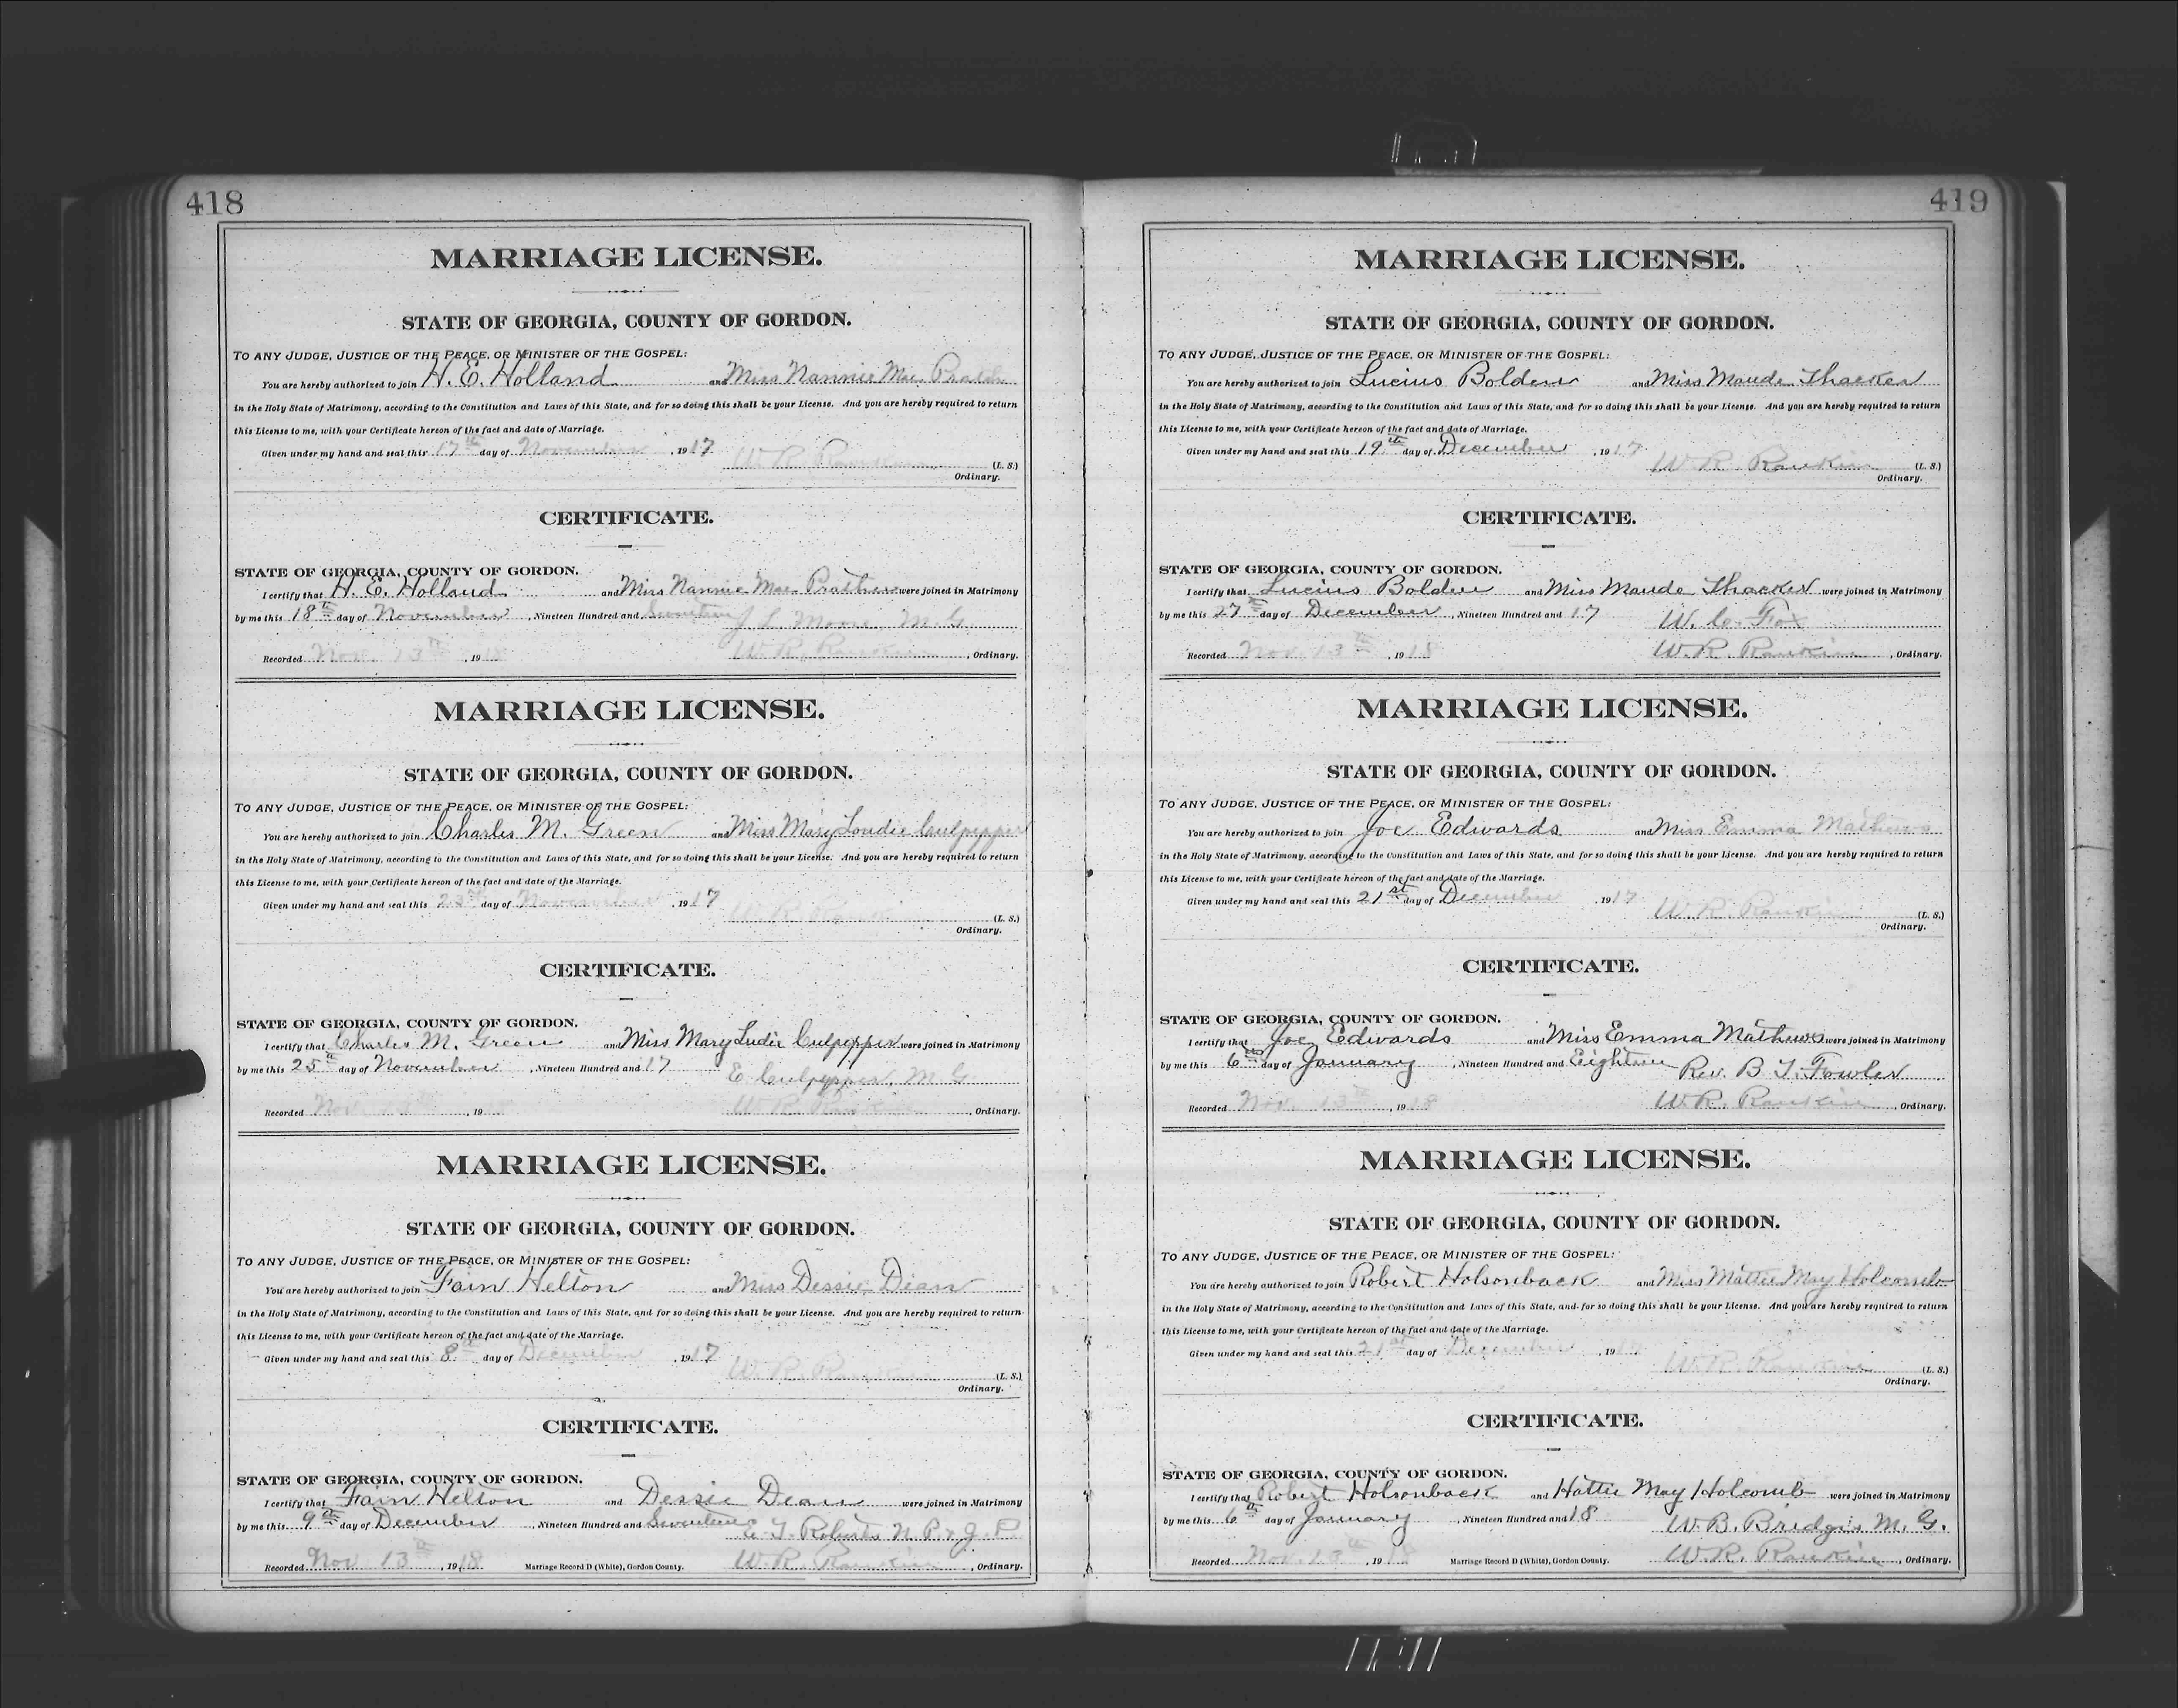 418
MARRIAGE LICENSE.
STATE OF GEORGIA, COUNTY OF GORDON.
TO ANY JUDGE, JUSTICE OF THE PEACE, OR MINISTER OF THE GOSPEL:
You are hereby authorized to join H. E. Holland and Miss Nannie Mae
in the Holy State of Matrimony, according to the Constitution and Laws of this State, and for so doing this shall be your License. And you are hereby required to return
this License to me, with your Certificate hereon of the fact and date of Marriage.
Given under my hand and seal this 17th day of November, 1917
W. R. Rankin (L. S.)
Ordinary.
CERTIFICATE.
STATE OF GEORGIA, COUNTY OF GORDON.
I certify that H. E. Holland and Miss Nannie Mae Prather were joined in Matrimony
by me this 18th day of November, Nineteen Hundred and Seventeen J. L. Moore M. G.
Recorded Nov. 13th, 1918 W. R. Rankin, Ordinary.
MARRIAGE LICENSE.
STATE OF GEORGIA, COUNTY OF GORDON.
TO ANY JUDGE, JUSTICE OF THE PEACE, OR MINISTER OF THE GOSPEL:
You are hereby authorized to join Charles M. Green and Miss Mary Loudie Culpepper
in the Holy State of Matrimony, according to the Constitution and Laws of this State, and for so doing this shall be your License. And you are hereby required to return
this License to me, with your Certificate hereon of the fact and date of the Marriage.
Given under my hand and seal this day of November, 1917
W. R. Rankin (L. S.)
Ordinary.
CERTIFICATE.
STATE OF GEORGIA, COUNTY OF GORDON.
I certify that Charles M. Green and Miss Mary Ludie Culpepper were joined in Matrimony
by me this 25th day of November, Nineteen Hundred and 17 E. Culpepper, M. G.
Recorded Nov. , 19 W. R. Rankin, Ordinary.
MARRIAGE LICENSE.
STATE OF GEORGIA, COUNTY OF GORDON.
TO ANY JUDGE, JUSTICE OF THE PEACE, OR MINISTER OF THE GOSPEL:
You are hereby authorized to join Fain Helton and Miss Dessie Dean
in the Holy State of Matrimony, according to the Constitution and Laws of this State, and for so doing this shall be your License. And you are hereby required to return
this License to me, with your Certificate hereon of the fact and date of the Marriage.
Given under my hand and seal this 8th day of December, 1917
W. R. Rankin (L. S.)
Ordinary.
CERTIFICATE.
STATE OF GEORGIA, COUNTY OF GORDON.
I certify that Fain Helton and Dessie Dean were joined in Matrimony
by me this 9th day of December, Nineteen Hundred and Seventeen T. Roberts N. P. & J. P.
Recorded Nov 13th, 1918 Marriage Record D (White), Gordon County. W. R. Rankin, Ordinary.
419
MARRIAGE LICENSE.
STATE OF GEORGIA, COUNTY OF GORDON.
TO ANY JUDGE, JUSTICE OF THE PEACE, OR MINISTER OF THE GOSPEL:
You are hereby authorized to join Lucius Bolden and Miss Maude Thacker
in the Holy State of Matrimony, according to the Constitution and Laws of this State, and for so doing this shall be your License. And you are hereby required to return
this License to me, with your Certificate hereon of the fact and date of Marriage.
Given under my hand and seal this 19th day of December, 1917
W. R. Rankin (L. S.)
Ordinary.
CERTIFICATE.
STATE OF GEORGIA, COUNTY OF GORDON.
I certify that Lucius Bolden and Miss Maude Thacker were joined in Matrimony
by me this 27th day of December, Nineteen Hundred and 17 W. C. Fox
Recorded Nov. 13th, 1918 W. R. Rankin, Ordinary.
MARRIAGE LICENSE.
STATE OF GEORGIA, COUNTY OF GORDON.
TO ANY JUDGE, JUSTICE OF THE PEACE, OR MINISTER OF THE GOSPEL:
You are hereby authorized to join Joe Edwards and Miss Emma Mathews
in the Holy State of Matrimony, according to the Constitution and Laws of this State, and for so doing this shall be your License. And you are hereby required to return
this License to me, with your Certificate hereon of the fact and date of the Marriage.
Given under my hand and seal this 21st day of December, 1917
W. R. Rankin (L. S.)
Ordinary.
CERTIFICATE.
STATE OF GEORGIA, COUNTY OF GORDON.
I certify that Joe Edwards and Miss Emma Mathews were joined in Matrimony
by me this 6th day of January, Nineteen Hundred and Eighteen Rev. B. T. Fowler
Recorded Nov. 13th, 1918 W. R. Rankin, Ordinary.
MARRIAGE LICENSE.
STATE OF GEORGIA, COUNTY OF GORDON.
TO ANY JUDGE, JUSTICE OF THE PEACE, OR MINISTER OF THE GOSPEL:
You are hereby authorized to join Robert Holsonback and Miss Mattie May Holcomb
in the Holy State of Matrimony, according to the Constitution and Laws of this State, and for so doing this shall be your License. And you are hereby required to return
this License to me, with your Certificate hereon of the fact and date of the Marriage.
Given under my hand and seal this 21st day of December, 19
W. R. Rankin (L. S.)
Ordinary.
CERTIFICATE.
STATE OF GEORGIA, COUNTY OF GORDON.
I certify that Robert Holsonback and Hattie May Holcomb were joined in Matrimony
by me this 6th day of January, Nineteen Hundred and 18 W. B. Bridges M. G.
Recorded Nov. 13th, 19 Marriage Record D (White), Gordon County. W. R. Rankin, Ordinary.